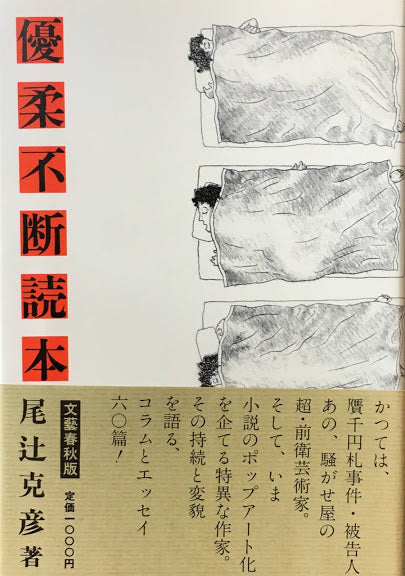 優柔不断読本
尾辻克彦著
文藝春秋版
定価一〇〇〇円
かつては、
贋千円札事件・被告人
あの 騒がせ屋の
超・前衛芸術家。
そして、いま
小説のポップアート化
を企てる特異な作家。
その持続と変貌
を語る、
コラムとエッセイ
六〇篇!